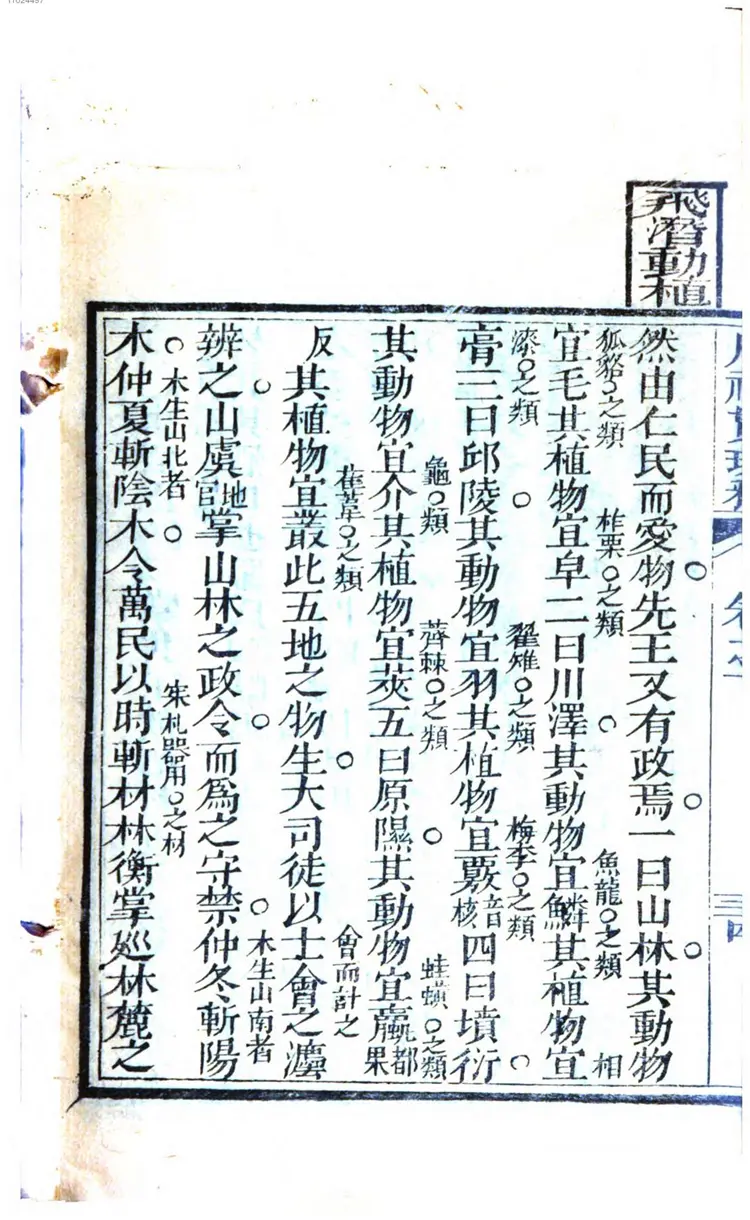 飛潛動植
然由仁民而愛物先王又有政焉一曰山林其動物
狐貉○之類 柞栗○之類 魚龍○之類 相
宜毛其植物宜阜二曰川澤其動物宜鱗其植物宜
漆○之類 翟雉○之類 梅李○之類
膏三曰邱陵其動物宜羽其植物宜覈音核四曰墳衍
龜○類 薺棘○之類 蛙蟥○之類
其動物宜介其植物宜莢五曰原隰其動物宜臝都果
萑葦○之類 會而計之
反其植物宜叢此五地之物生大司徒以土會之灋
木生山南者
辨之山虞地官掌山林之政令而爲之守禁仲冬斬陽
木生山北者 札器用○之材
木仲夏斬陰木令萬民以時斬材林衡掌廵林麓之